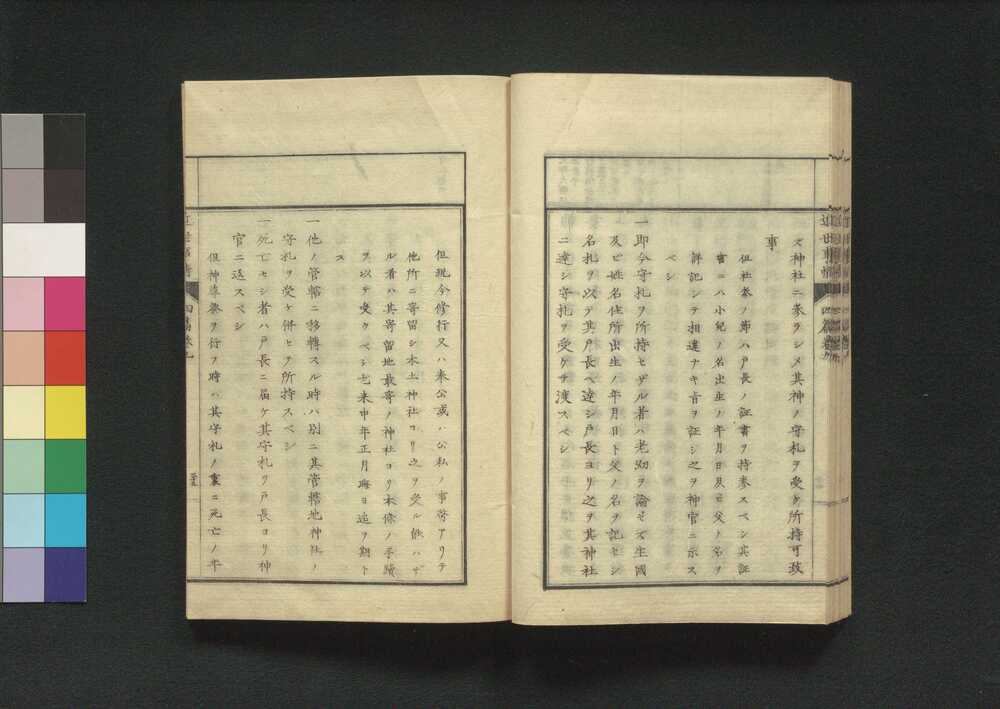 ズ神社ニ参ラシメ其神ノ守札ヲ受ケ所持可致
事
但社参ノ節ハ戸長ノ証書ヲ持参スベシ其証
書ニハ小児ノ名出生ノ年月日及ビ父ノ名ヲ
詳記シテ相違ナキ旨ヲ証シ之ヲ神官ニ示ス
ベシ
一即今守札ヲ所持セザル者ハ老幼ヲ論ゼズ生國
及ビ姓名住所出生ノ年月日ト父ノ名ヲ記セシ
名札ヲ以テ其戸長ヘ達シ戸長ヨリ之ヲ其神社
ニ達シ守札ヲ受ケテ渡スベシ
近世事情
四篇卷九
但現今修行又ハ奉公或ハ公私ノ事務アリテ
他所ニ寄留シ本土神社ヨリ之ヲ受ル能ハザ
ル者ハ其寄留地最寄ノ神社ヨリ本條ノ手續
ヲ以テ受クベシ尤来申年正月晦日迄ヲ期ト
ス
一他ノ管轄ニ移轉スル時ハ別ニ其管轄地神社ノ
守札ヲ受ケ併セテ所持スベシ
一死亡セシ者ハ戸長ニ届ケ其守札ヲ戸長ヨリ神
官ニ送スベシ
但神葬祭ヲ行ヲ時ハ其守札ノ裏ニ死亡ノ年
近世事情
四篇卷九